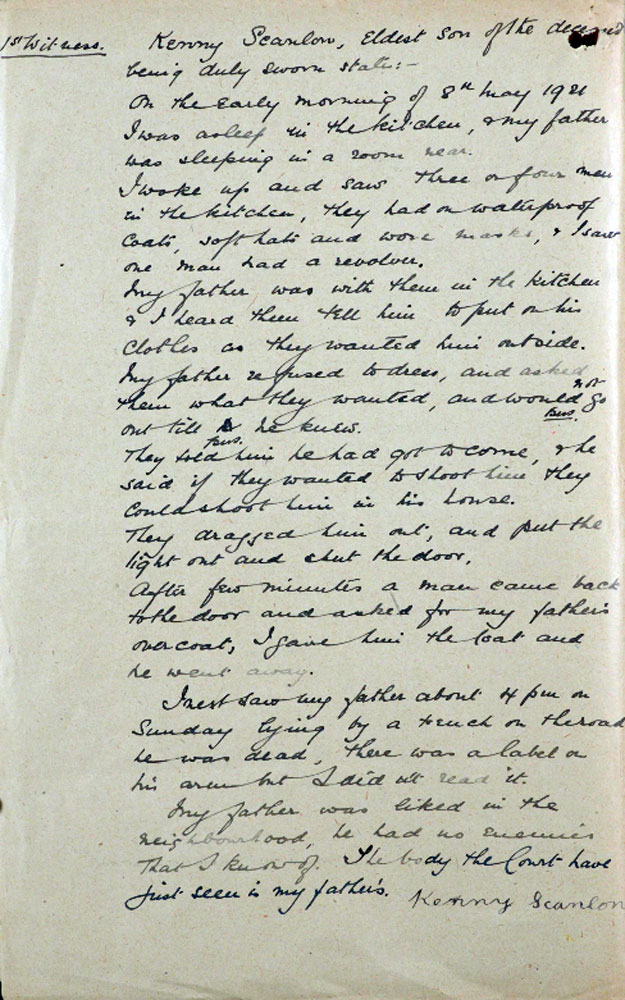 1st Witness. Kenny Scanlon, Eldest son of the deceased
being duly sworn states:-
On the early morning of 8th May 1921
I was asleep in the kitchen, & my father
was sleeping in a room near.
I woke up and saw three or four men
in the kitchen, they had on waterproof
coats, soft hats and wore masks, & I saw
one man had a revolver.
My father was with them in the kitchen
& I heard them tell him to put on his
clothes as they wanted him outside.
My father refused to dress, and asked
them what they wanted, and would not go
out till he knew.
They told him he had got to come, & he
said if they wanted to shoot him they
could shoot him in his house.
They dragged him out, and put the
light out and shut the door.
After few minutes a man came back
to the door and asked for my father's
overcoat, I gave him the coat and
he went away.
I next saw my father about 4 pm on
Sunday lying by a trench on the road
he was dead, there was a label on
his arm but I did not read it.
My father was liked in the
neighbourhood, he had no enemies
that I know of. The body the Court have
just seen is my father's. Kenny Scanlon